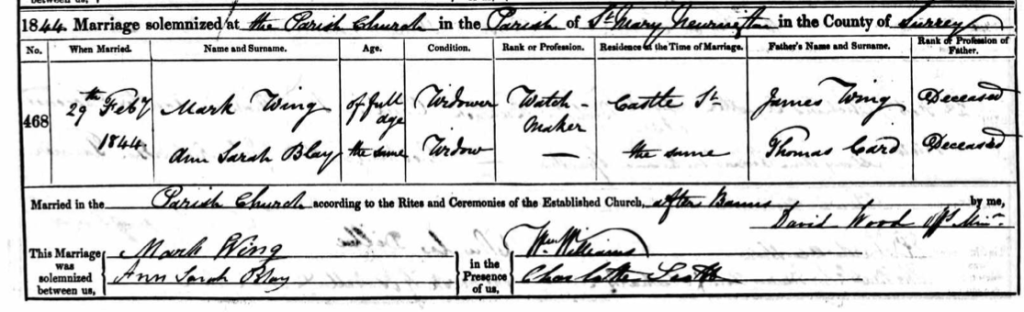 1844. Marriage solemnized at the Parish Church in the Parish of St Mary Newington in the County of Surrey
No. When Married. Name and Surname. Age. Condition. Rank or Profession. Residence at the Time of Marriage. Father's Name and Surname. Rank or Profession of Father.
468 29th Feby 1844. Mark Wing of full age Widower Watch-Maker Castle St James Wing Deceased
Ann Sarah Blay the same Widow — the same Thomas Card Deceased
Married in the Parish Church according to the Rites and Ceremonies of the Established Church, after Banns by me,
David Wood Offg Minr.
This Marriage was solemnized between us, Mark Wing in the Presence of us, Wm Williams
Ann Sarah Blay Charlotte